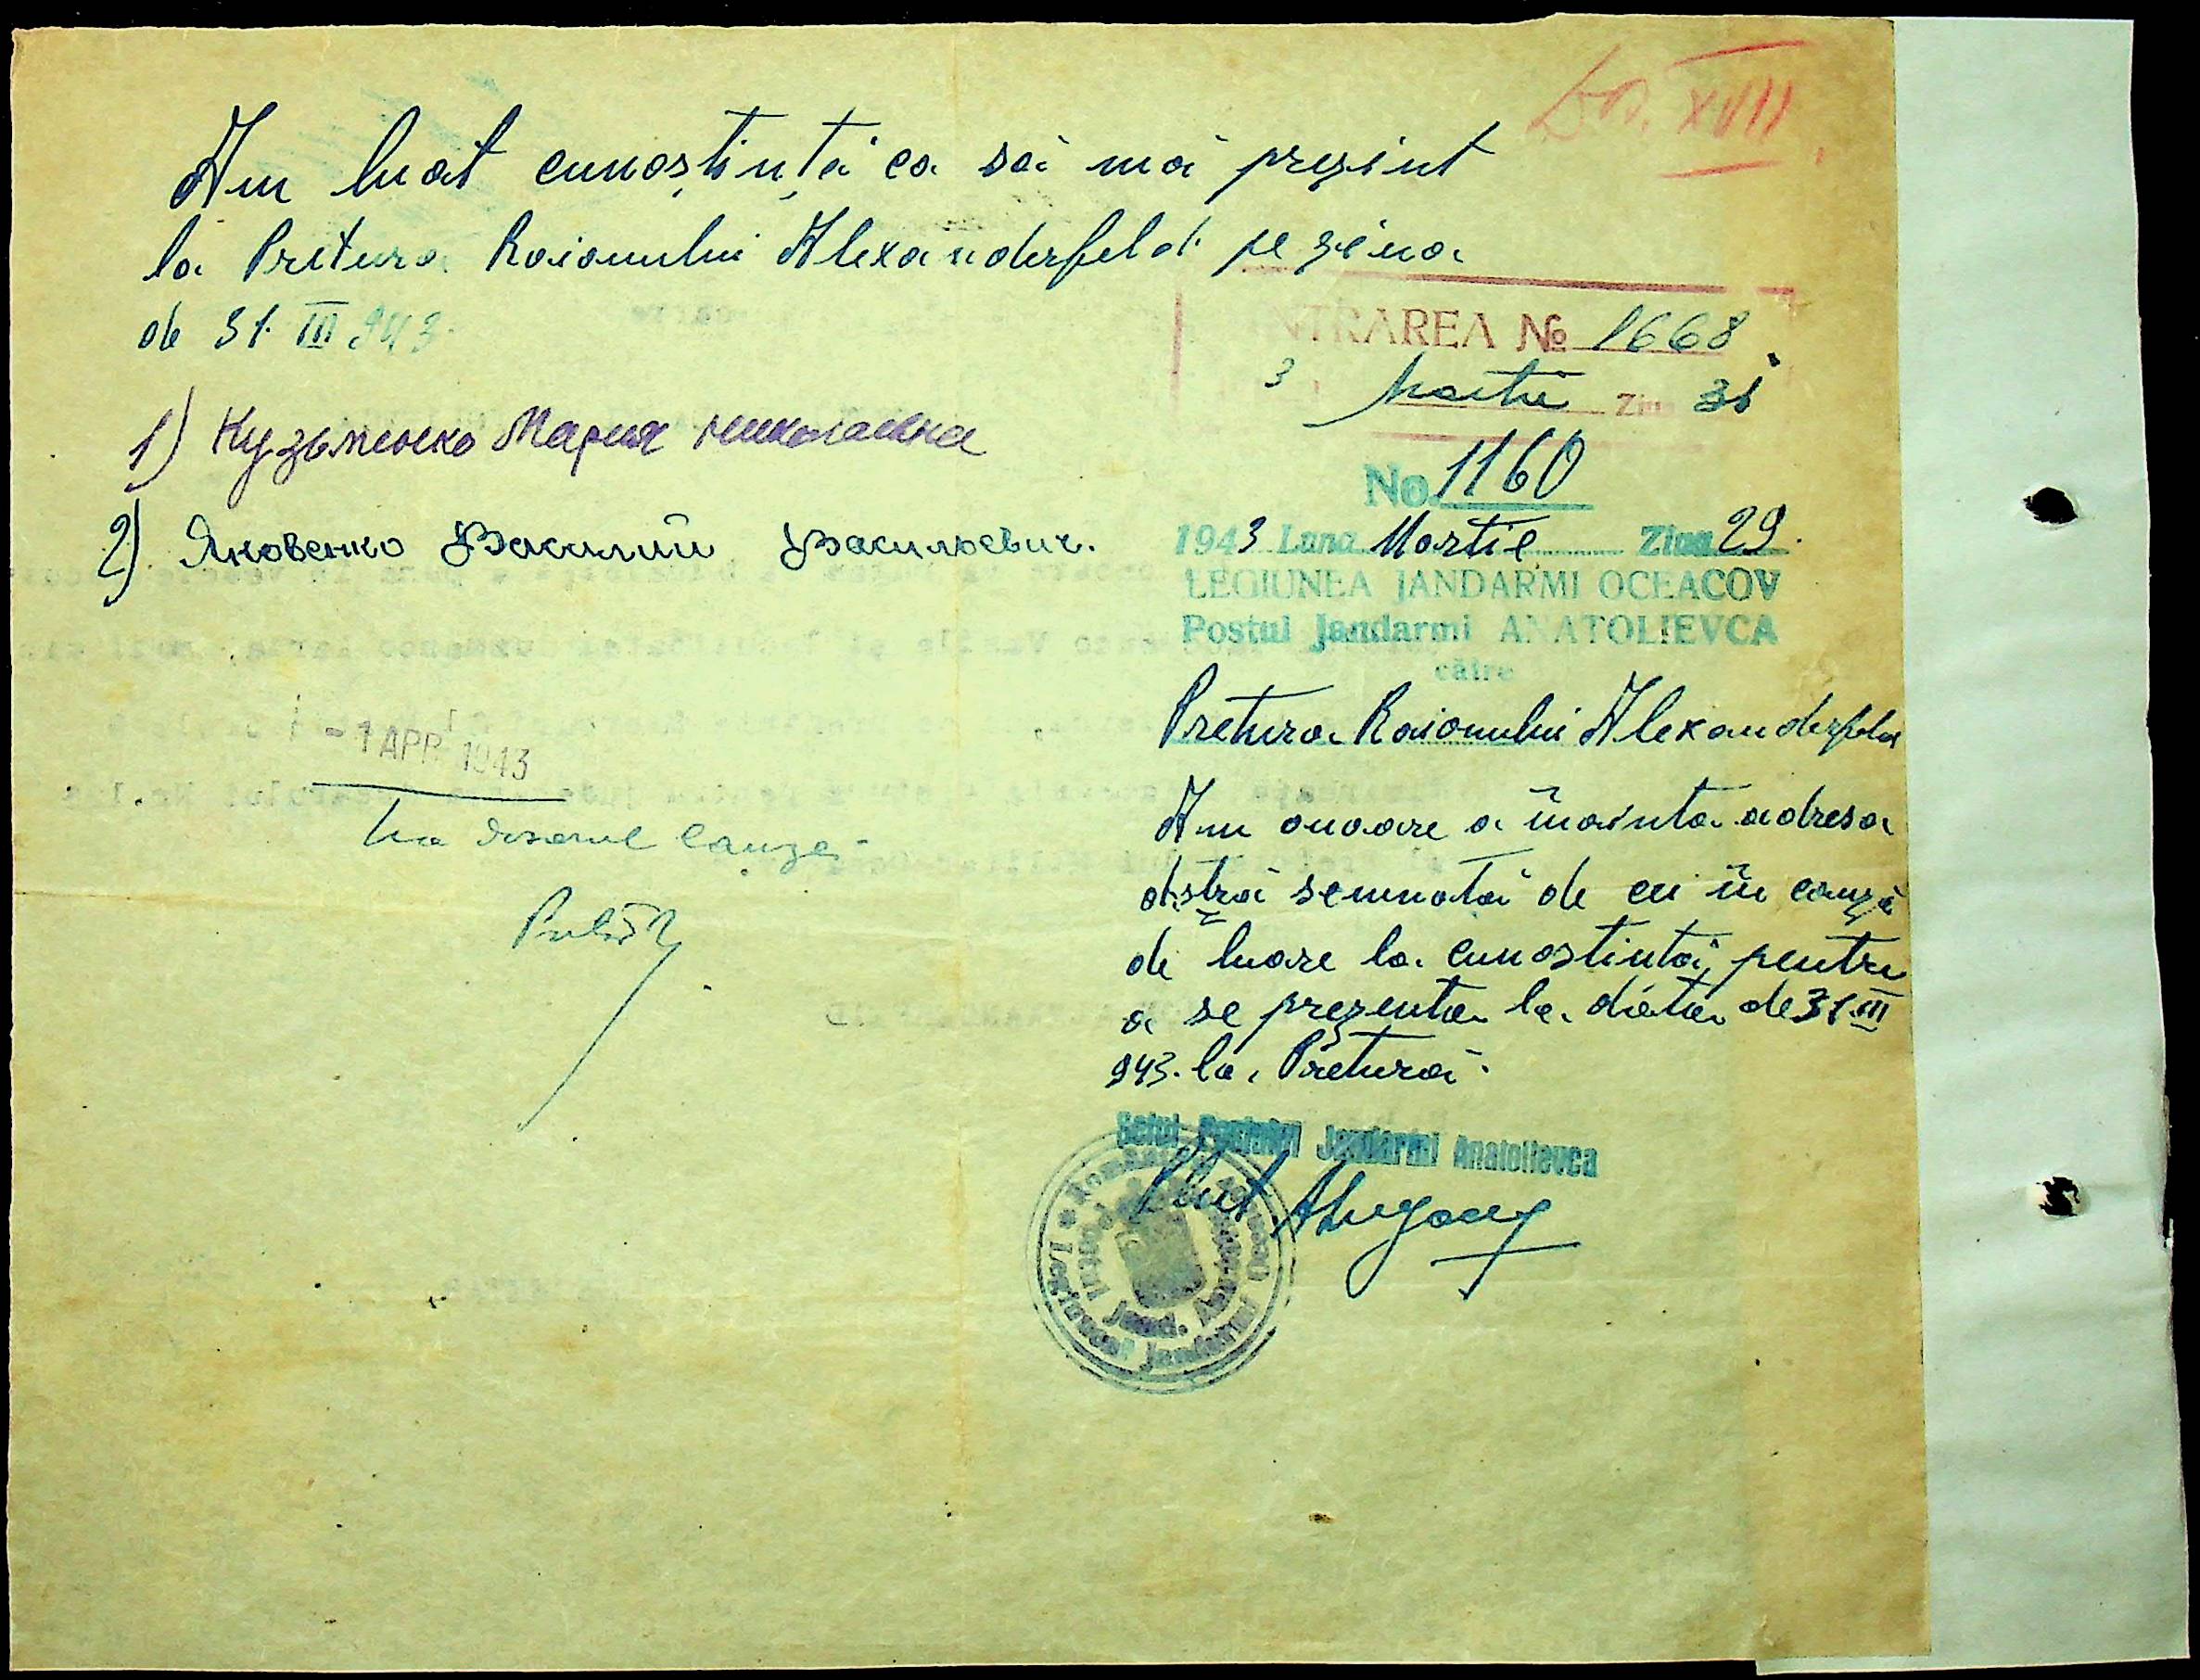 Dos. XVII
Am luat cunoștința ca să mă prezint
la Pretura Raionului Alexanderfeld pe ziua
de 31. III 943.
1) Кузьменко Мария Николаевна
2) Яковенко Василий Васильевич.
- 1 APR 1943
La dosarul cauzei
INTRAREA № 1668
Martie Ziua 31
No. 1160
1943 Luna Martie Ziua 29.
LEGIUNEA JANDARMI OCEACOV
Postul Jandarmi ANATOLIEVCA
către
Pretura Raionului Alexanderfeld
Am onoare a înainta adresa
dstră semnată de cei în cauză
de luare la cunostintă, pentru
a se prezenta la data de 31.III
943. la Pretură.
Șeful Postului Jandarmi Anatolievca